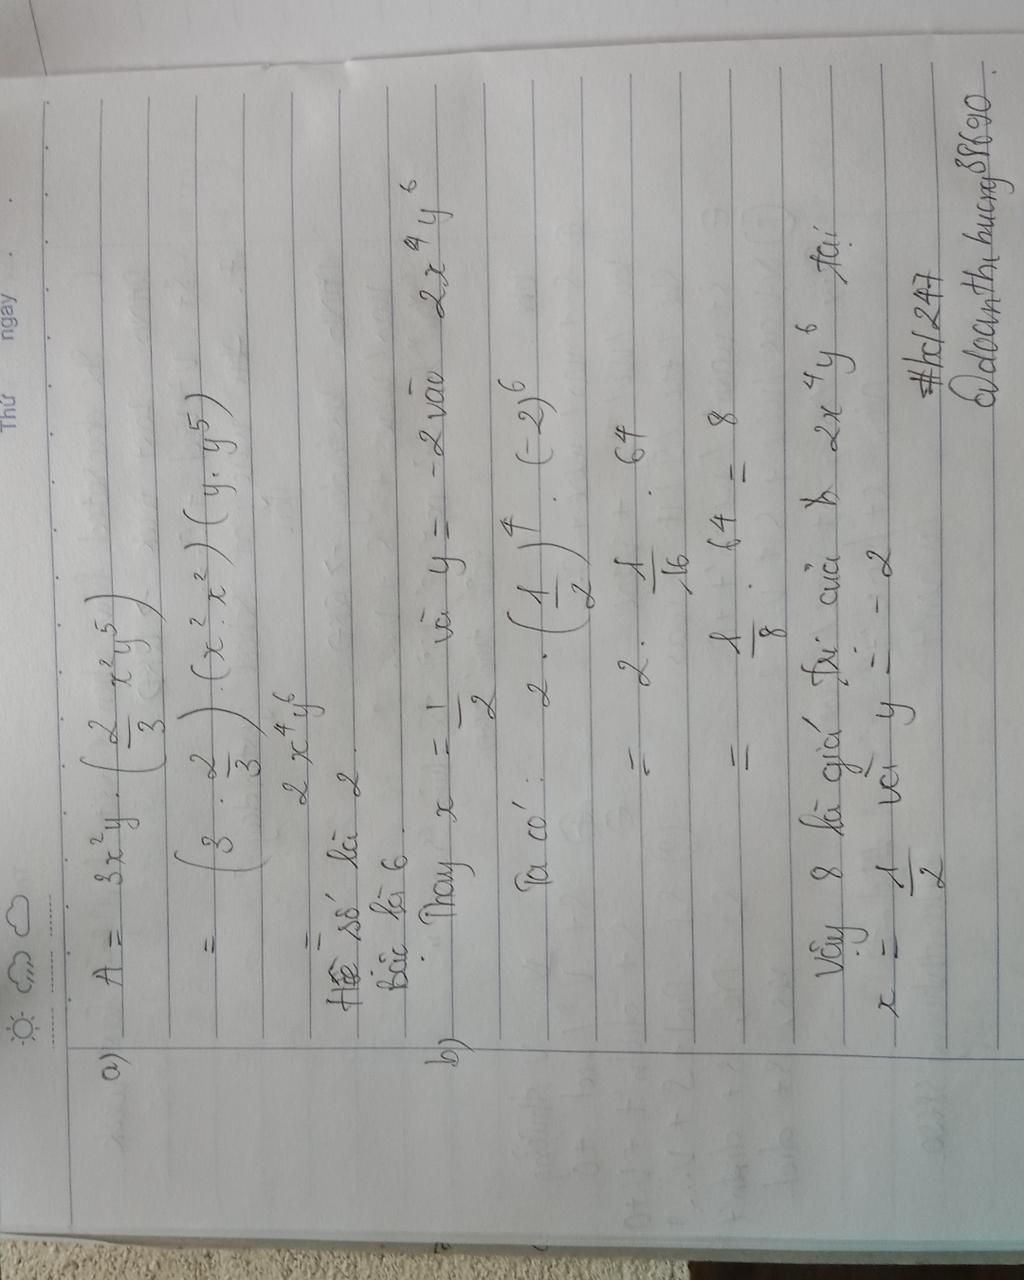 Thứ ngày
a) A = 3x²y · (2/3 x²y⁵)
= (3 · 2/3) · (x² · x²) (y · y⁵)
= 2x⁴y⁶
Hệ số là 2
Bậc là 6
b) Thay x = 1/2 và y = -2 vào 2x⁴y⁶
Ta có: 2 · (1/2)⁴ · (-2)⁶
= 2 · 1/16 · 64
= 1/8 · 64 = 8
Vậy 8 là giá trị của 2x⁴y⁶ tại
x = 1/2 và y = -2
#hd247
@doanthihuong38690